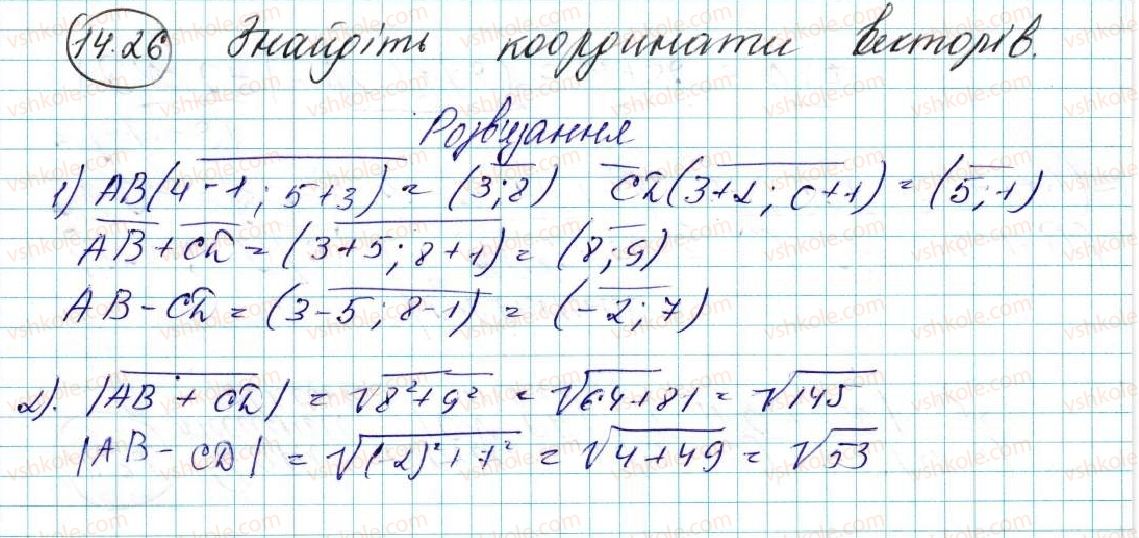 14.26 Знайдіть координати векторів.
Розвязання
1) AB(4-1; 5+3) = (3;8) CD(3+2; 0+1) = (5;1)
AB+CD = (3+5; 8+1) = (8;9)
AB-CD = (3-5; 8-1) = (-2; 7)
2). |AB + CD| = √8²+9² = √64+81 = √145
|AB - CD| = √(-2)²+7² = √4+49 = √53